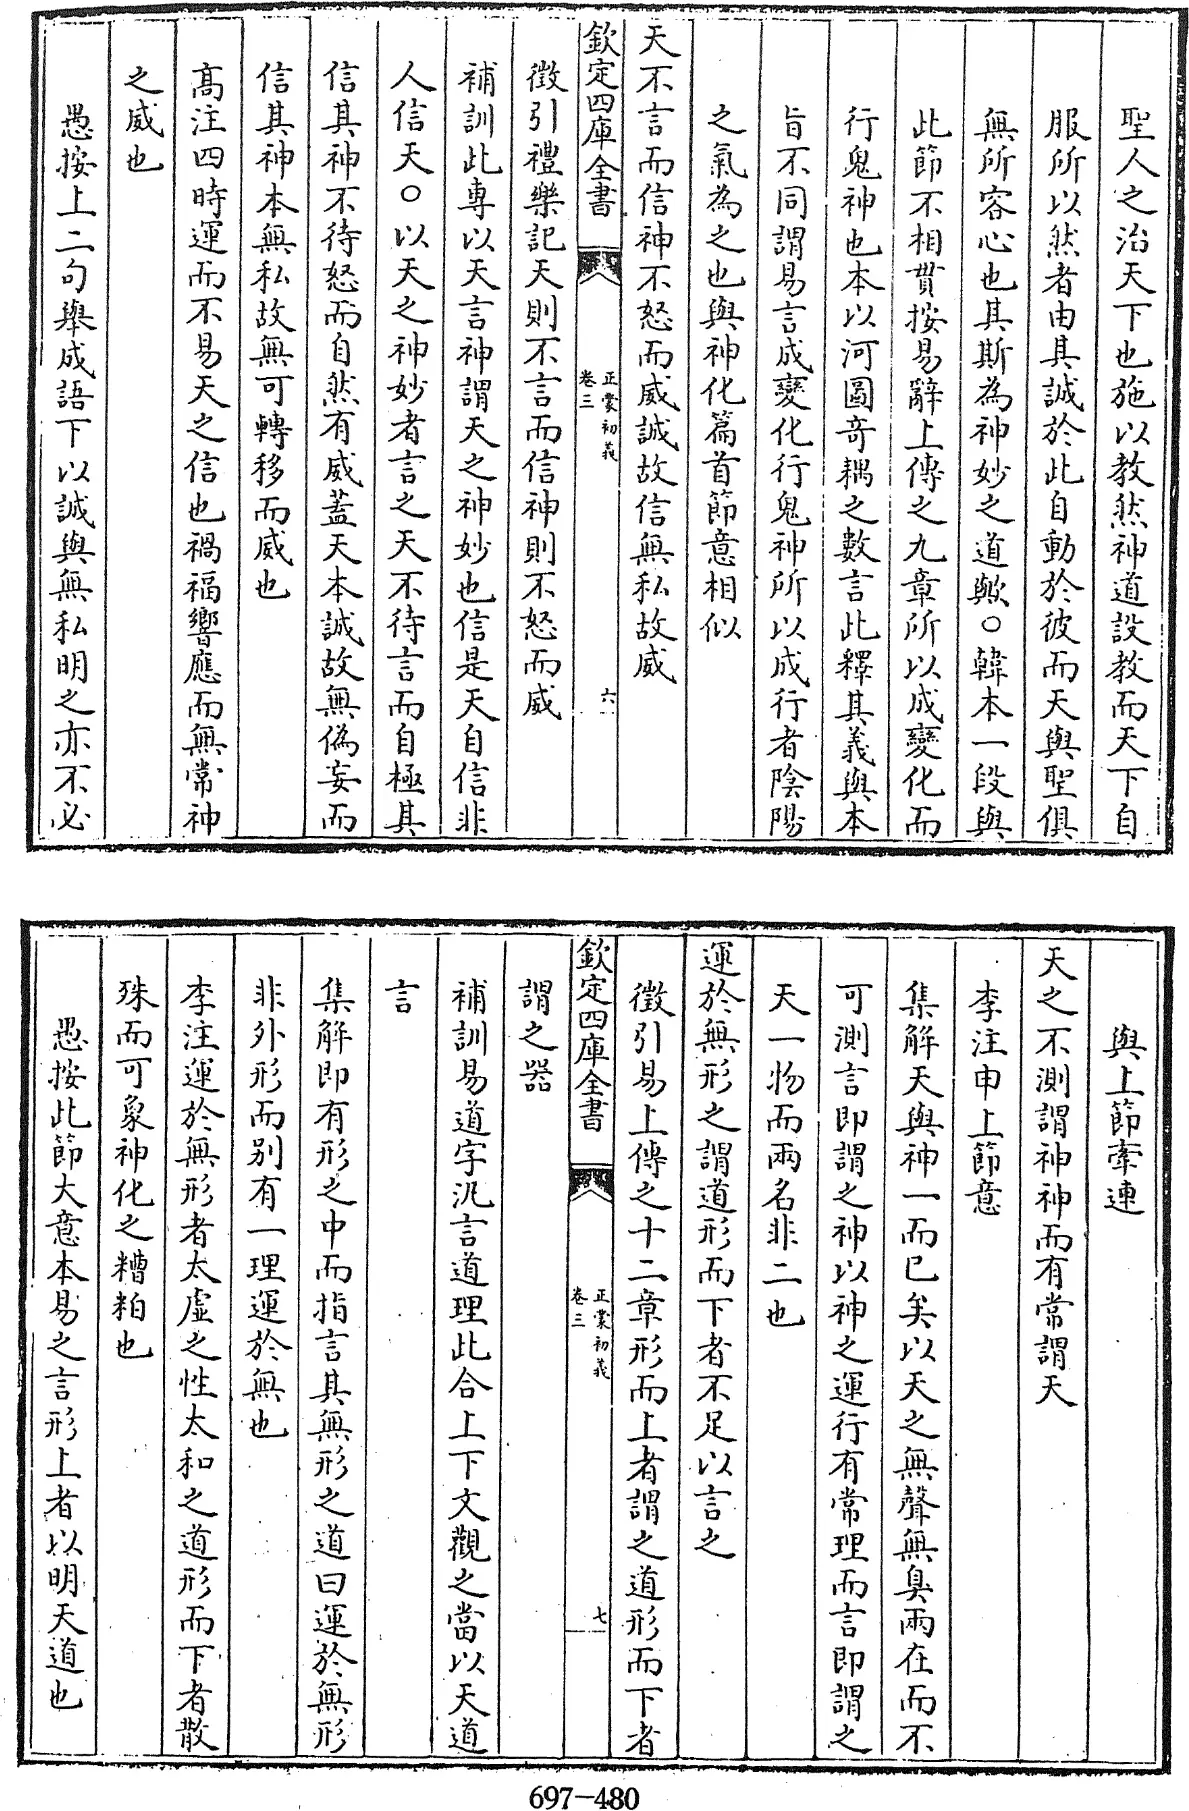 聖人之治天下也施以教然神道設教而天下自
服所以然者由其誠於此自動於彼而天與聖俱
無所容心也其斯為神妙之道歟○韓本一段與
此節不相貫按易辭上傳之九章所以成變化而
行鬼神也本以河圖奇耦之數言此釋其義與本
旨不同謂易言成變化行鬼神所以成行者陰陽
之氣為之也與神化篇首節意相似
天不言而信神不怒而威誠故信無私故威
欽定四庫全書
正蒙初義
卷三
六
徵引禮樂記天則不言而信神則不怒而威
補訓此專以天言神謂天之神妙也信是天自信非
人信天○以天之神妙者言之天不待言而自極其
信其神不待怒而自然有威蓋天本誠故無偽妄而
信其神本無私故無可轉移而威也
高注四時運而不易天之信也禍福響應而無常神
之威也
愚按上二句舉成語下以誠與無私明之亦不必
與上節牽連
天之不測謂神神而有常謂天
李注申上節意
集解天與神一而已矣以天之無聲無臭兩在而不
可測言即謂之神以神之運行有常理而言即謂之
天一物而兩名非二也
運於無形之謂道形而下者不足以言之
徵引易上傳之十二章形而上者謂之道形而下者
欽定四庫全書
正蒙初義
卷三
七
謂之器
補訓易道字汎言道理此合上下文觀之當以天道
言
集解即有形之中而指言其無形之道曰運於無形
非外形而别有一理運於無也
李注運於無形者太虛之性太和之道形而下者散
殊而可象神化之糟粕也
愚按此節大意本易之言形上者以明天道也
697-480